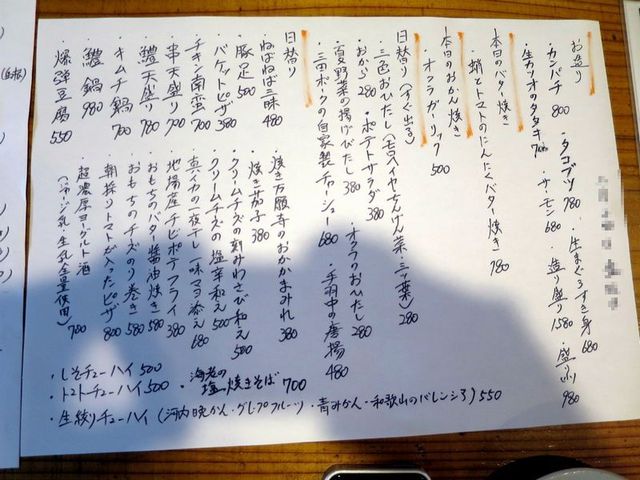 お造り
・カンパチ 800 ・タコブツ 780 ・生まぐろすき身 680
・生カツオのタタキ 780 ・サーモン 680 ・造り盛り 1580 ・盛り小 980
本日のバター焼き
・蛸とトマトのにんにくバター焼き 780
本日のおかん焼き
・オクラガーリック 500
日替り(すぐ出る)
・三色おひたし(モロヘイヤ・ちんげん菜・三ッ葉) 280
・おから 280 ・ポテトサラダ 380 ・オクラのおひたし 280
・夏野菜の揚げびたし 380 ・手羽中の唐揚 480
・三田ポークの自家製チャーシュー 680
日替り
・ねばねば三昧 480
・豚足 500
・バゲットピザ 380
・チキン南蛮 700
・串天盛り 700
・鱧天盛り 780
・キムチ鍋 700
・鱧鍋 980
・爆弾豆腐 550
・焼き万願寺のおかかまみれ 380
・焼き茄子 380
・クリームチーズの刻みわさび和え 500
・クリームチーズの塩辛和え 500
・真イカの一夜干し 一味マヨ添え 680
・地場産チビポテフライ 380
・おもちのバター醤油焼き 580
・おもちのチーズのり巻き 580
・朝採りトマトが入ったピザ 800
・超濃厚ヨーグルト酒 700
(ジャージー乳・生乳全量使用)
・しそチューハイ 500
・トマトチューハイ 500
・海老の塩焼きそば 700
・生絞りチューハイ(河内晩かん・グレープフルーツ・青みかん・和歌山のバレンシア) 550